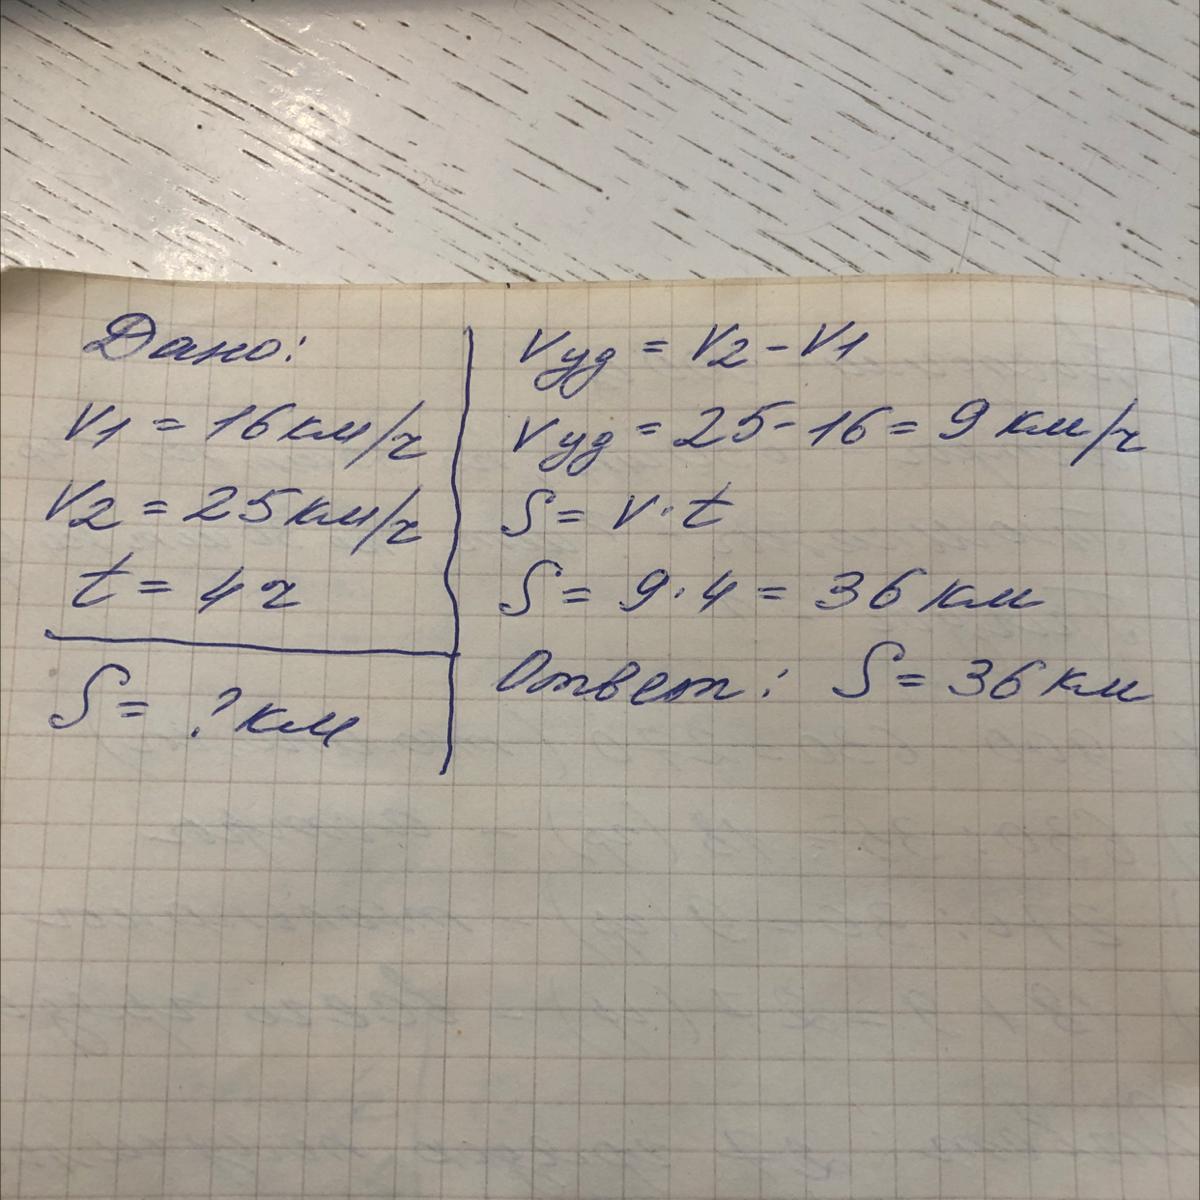 Дано:
V1 = 16 км/ч
V2 = 25 км/ч
t = 4 ч
S = ? км
Vуд = V2 - V1
Vуд = 25 - 16 = 9 км/ч
S = V · t
S = 9 · 4 = 36 км
Ответ: S = 36 км